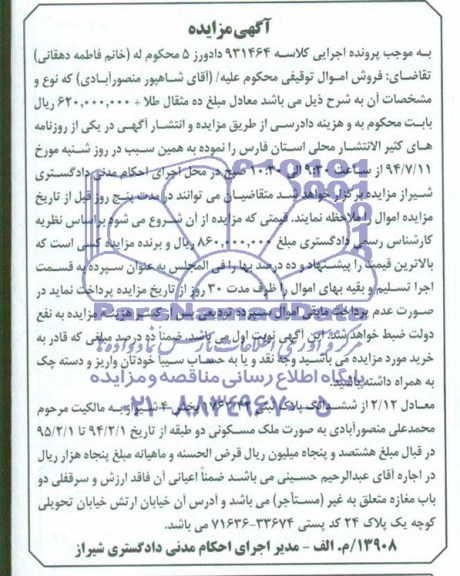 آگهی مزایده
به موجب پرونده اجرایی کلاسه ۹۳۱۴۶۴ دادورز ۵ محکوم له (خانم فاطمه دهقانی)
تقاضای: فروش اموال توقیفی محکوم علیه/ (آقای شاهپور منصورآبادی) که نوع و
مشخصات آن به شرح ذیل می باشد معادل مبلغ ده مثقال طلا + ۶۲۰,۰۰۰,۰۰۰ ریال
بابت محکوم به و هزینه دادرسی از طریق مزایده و انتشار آگهی در یکی از روزنامه
های کثیر الانتشار محلی استان فارس را نموده به همین سبب در روز شنبه مورخ
۹۴/۷/۱۱ از ساعت ۹:۳۰ الی ۱۰:۳۰ صبح در محل اجرای احکام مدنی دادگستری
شیراز مزایده برگزار خواهد شد متقاضیان می توانند در مدت پنج روز قبل از تاریخ
مزایده اموال را ملاحظه نمایند. قیمتی که مزایده از آن شروع می شود براساس نظریه
کارشناس رسمی دادگستری مبلغ ۸۶۰,۰۰۰,۰۰۰ ریال و برنده مزایده کسی است که
بالاترین قیمت را پیشنهاد و ده درصد بها را فی المجلس به عنوان سپرده به قسمت
اجرا تسلیم و بقیه بهای اموال را ظرف مدت ۳۰ روز از تاریخ مزایده پرداخت نماید در
صورت عدم پرداخت مابقی اموال سپرده تودیعی پس از کسر هزینه مزایده به نفع
دولت ضبط خواهد شد. این آگهی نوبت اول می باشد. ضمناً ده درصد مبلغی که قادر به
خرید مورد مزایده می باشید وجه نقد و یا به حساب سیبا خودتان واریز و دسته چک
به همراه داشته باشید.
پایگاه اطلاع رسانی مناقصه و مزایده
معادل ۲/۱۲ از ششدانگ پلاک ثبتی بخش ۴ شیراز به مالکیت مرحوم
۰۲۱-۸۸۳۴۹۶۷۰-۵
محمدعلی منصورآبادی به صورت ملک مسکونی دو طبقه از تاریخ ۹۴/۲/۱ تا ۹۵/۲/۱
در قبال مبلغ هشتصد و پنجاه میلیون ریال قرض الحسنه و ماهیانه مبلغ پنجاه هزار ریال
در اجاره آقای عبدالرحیم حسینی می باشد ضمناً اعیانی آن فاقد ارزش و سرقفلی دو
باب مغازه متعلق به غیر (مستأجر) می باشد و آدرس آن خیابان ارتش خیابان تحویلی
کوچه یک پلاک ۲۴ کد پستی ۳۳۶۷۴-۷۱۶۳۶ می باشد.
۱۳۹۰۸/م. الف - مدیر اجرای احکام مدنی دادگستری شیراز